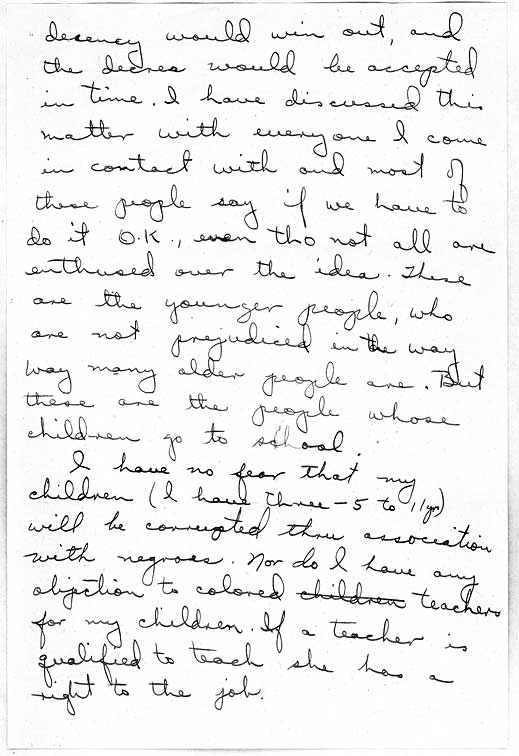 decency would win out, and
the decree would be accepted
in time. I have discussed this
matter with everyone I come
in contact with and most of
these people say if we have to
do it O.K., even tho not all are
enthused over the idea. These
are the younger people, who
are not prejudiced in the way
way many older people are. But
these are the people whose
children go to school.
I have no fear that my
children (I have three - 5 to 11 yr)
will be corrupted thru association
with negroes. Nor do I have any
objection to colored children teachers
for my children. If a teacher is
qualified to teach she has a
right to the job.